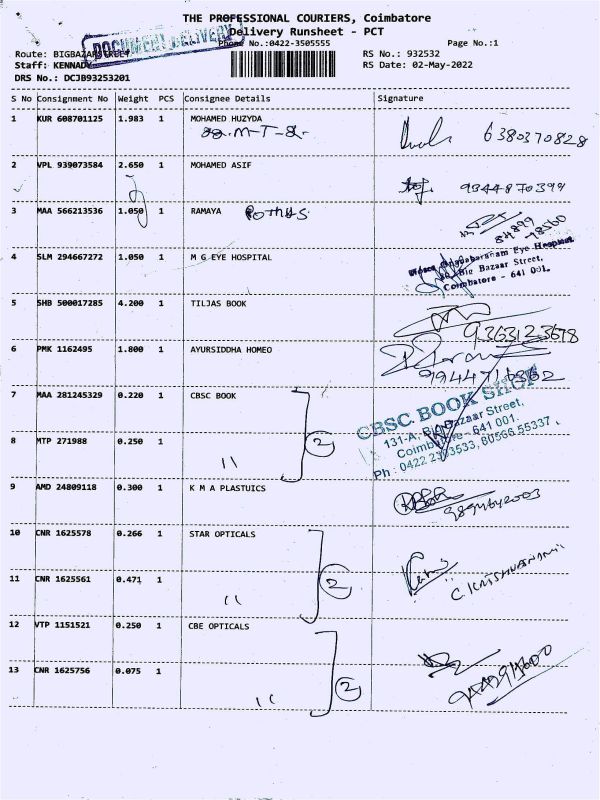 THE PROFESSIONAL COURIERS, Coimbatore
Delivery Runsheet - PCT
DOCUMENT DELIVERY
Phone No.:0422-3505555 Page No.:1
Route: BIGBAZARSTREET RS No.: 932532
Staff: KENNADY RS Date: 02-May-2022
DRS No.: DCJB93253201
S No Consignment No Weight PCS Consignee Details Signature
1 KUR 608701125 1.983 1 MOHAMED HUZYDA
6380370828
2 VPL 939073584 2.650 1 MOHAMED ASIF
9344870399
3 MAA 566213536 1.050 1 RAMAYA Pothys
4 SLM 294667272 1.050 1 M G EYE HOSPITAL
Eye Hospital
Big Bazaar Street,
Coimbatore - 641 001.
5 SHB 500017285 4.200 1 TILJAS BOOK
9363123678
6 PMK 1162495 1.800 1 AYURSIDDHA HOMEO
7 MAA 281245329 0.220 1 CBSC BOOK
CBSC BOOK SHOP
131-A, Big Bazaar Street,
Coimbatore - 641 001.
Ph : 0422 2393533, 80566 55337
8 MTP 271988 0.250 1 11 2
9 AMD 24809118 0.300 1 K M A PLASTUICS
10 CNR 1625578 0.266 1 STAR OPTICALS
11 CNR 1625561 0.471 1 11 2
12 VTP 1151521 0.250 1 CBE OPTICALS
13 CNR 1625756 0.075 1 11 2